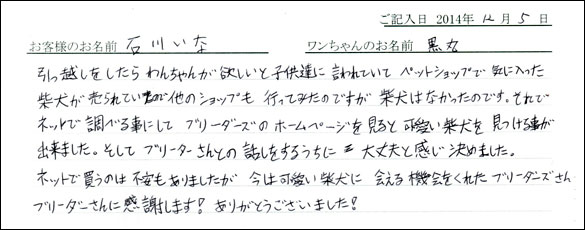 ご記入日 2014年 12月 5日
お客様のお名前 石川いな ワンちゃんのお名前 黒丸
引っ越しをしたら わんちゃんが欲しいと子供達に 言われていて ペットショップで 気に入った
柴犬が売られていましたので他のショップも 行ってみたのですが 柴犬はなかったのです。それで
ネットで 調べる事にして ブリーダーズのホームページを見ると 可愛い柴犬を 見つける事が
出来ました。そして ブリーダーさんとの 話しをするうちに 大丈夫と感じ 決めました。
ネットで買うのは 不安もありましたが 今は可愛い柴犬に 会える機会をくれた ブリーダーズさん
ブリーダーさんに感謝します! ありがとうございました!